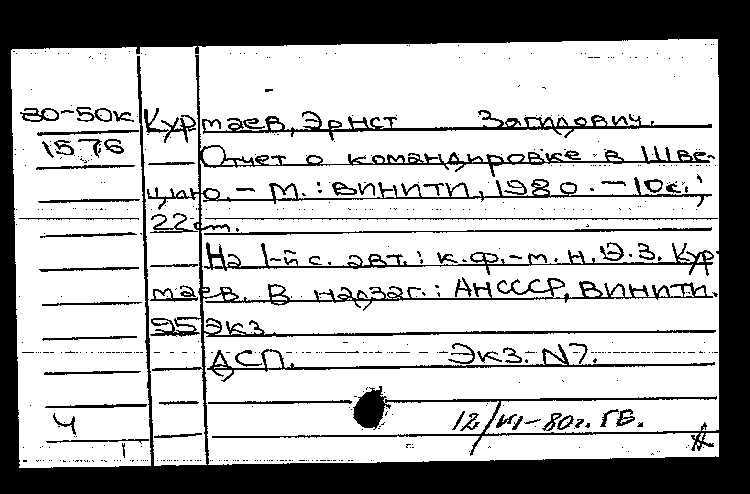 80-50к Куртаев, Эрнст Загидович.
1576 Отчет о командировке в Шве-
цию. - М. : ВИНИТИ, 1980. - 10с.;
22см.
На 1-й с. авт.: к.ф.-м.н. Э.З. Кур-
таев. В надзаг.: АНСССР, ВИНИТИ.
95 экз.
ДСП. Экз. N7.
Ч 12/VI-80г. ГБ.